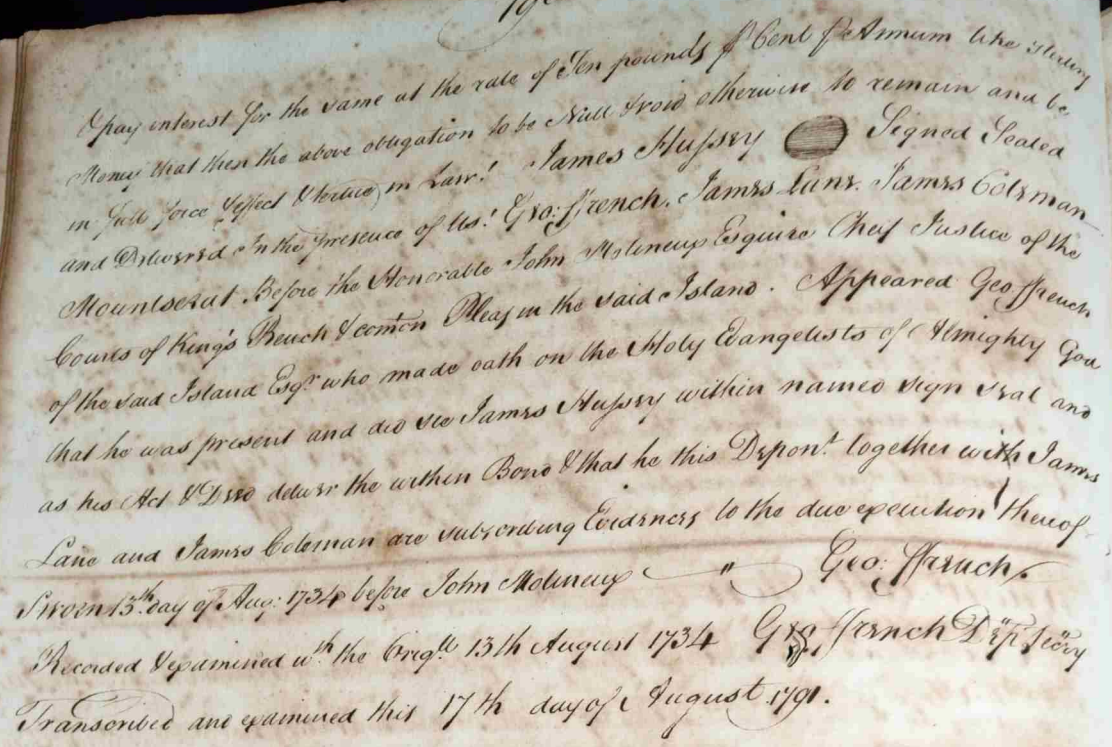 & pay interest for the same at the rate of Ten pounds ⅌ Cent ⅌ Annum like Sterling
Money that then the above obligation to be Null & void otherwise to remain and be
in full force Effect & virtue in Law! James Hussey Signed Sealed
and Delivered In the presence of Us! Geo: ffrench. James Lane. James Coleman
Mountserat Before the Honorable John Molineux Esquire Cheif Justice of the
Courts of King's Bench & comon Pleas in the said Island. Appeared Geo ffrench
of the said Island Esqr. who made oath on the Holy Evangelists of Almighty God
that he was present and did see James Hussey within named sign seal and
as his Act & Deed deliver the within Bond & that he this Depont. together with James
Lane and James Coleman are subscribing Evidences to the due execution thereof
Sworn 13th. day of Aug: 1734 before John Molineux " Geo: ffrench.
Recorded & examined wth. the Origll. 13th August 1734 Geo ffrench Dep Secry
Transcribed and examined this 17th day of August 1791.